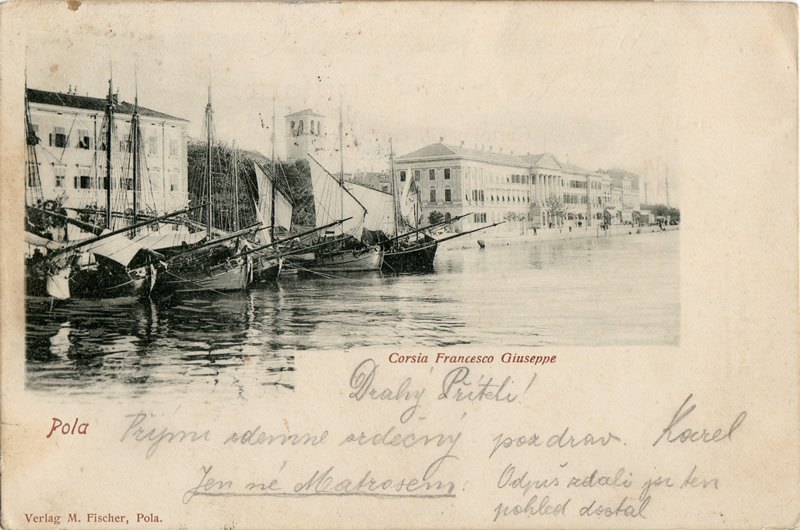 Corsia Francesco Giuseppe
Drahý Příteli!
Pola
Přijmi odemne srdečný pozdrav. Karel
Jen né Matrosem.
Odpiš zdali jsi ten
pohled dostal
Verlag M. Fischer, Pola.